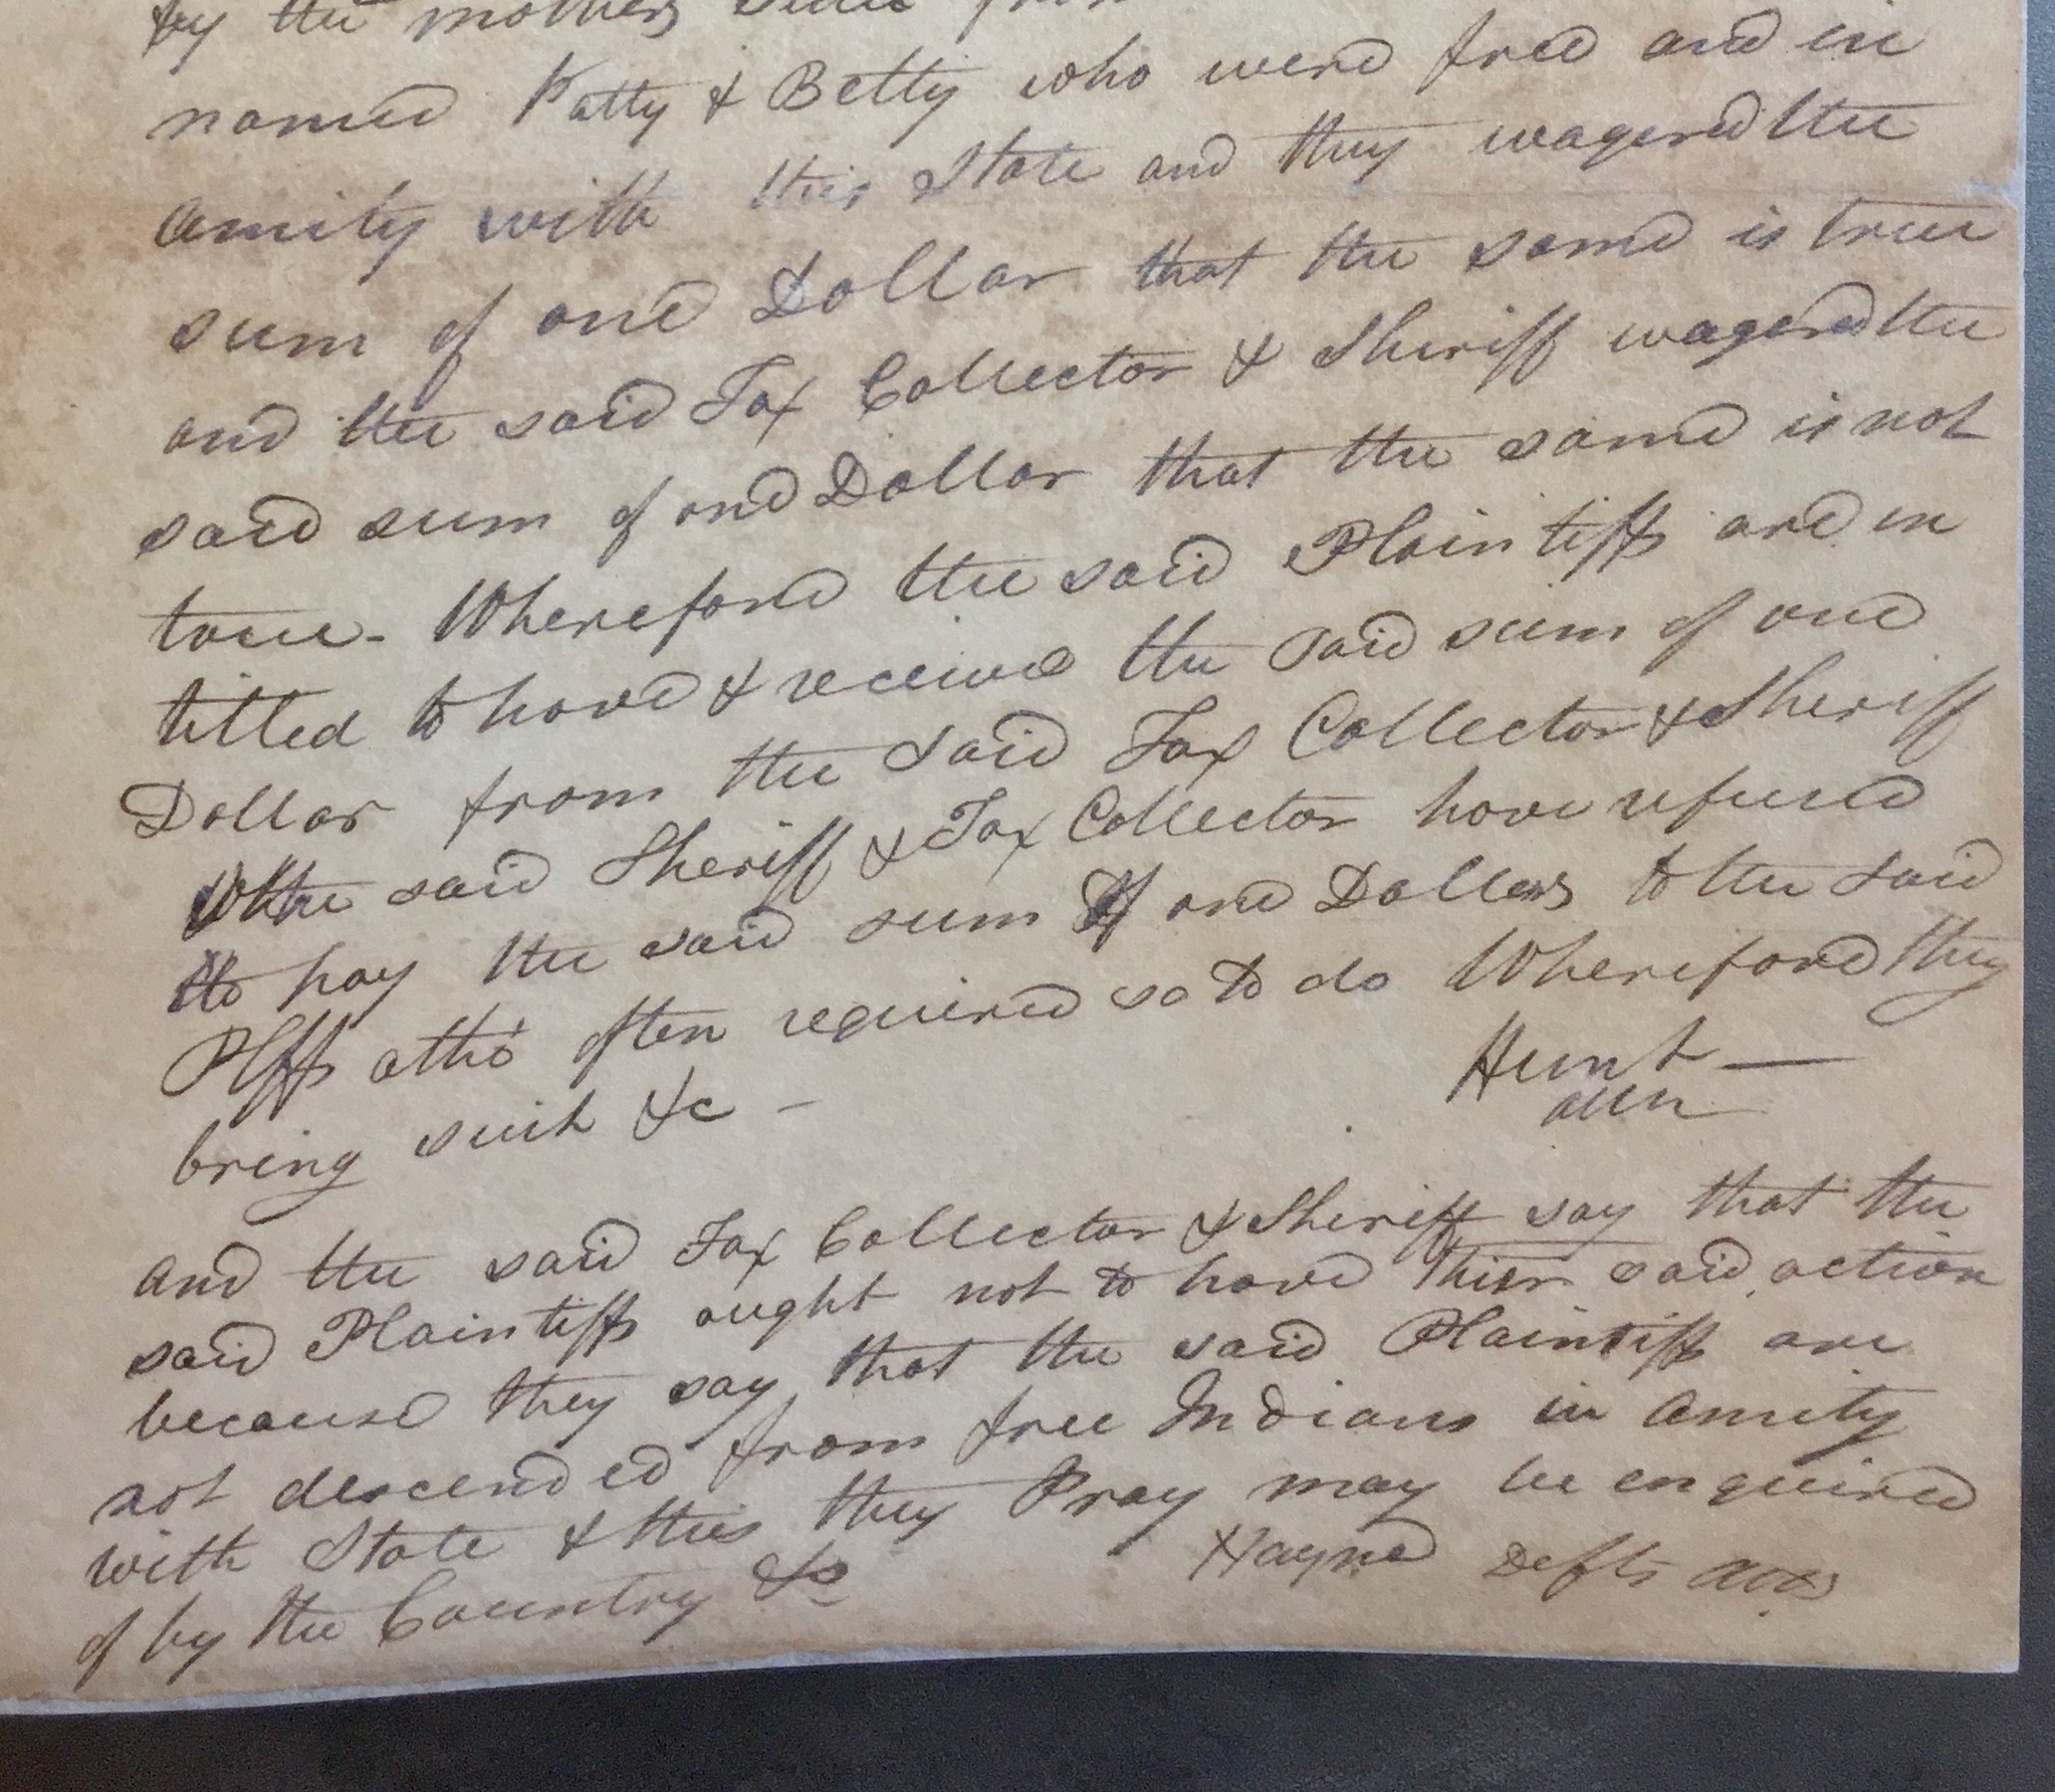 by the mothers side from
named Patty & Betty who were free and in
amity with this State and they wagered the
sum of one Dollar that the same is true
and the said Tax Collector & Sheriff wagered the
said sum of one Dollar that the same is not
true - Wherefore the said Plaintiffs are in
titled to have & receive the said sum of one
Dollar from the said Tax Collector & Sheriff
the said Sheriff & Tax Collector have refused
to pay the said sum of one Dollars to the said
Plffs altho often required so to do Wherefore they
bring suit &c -
Hunt —
and the said Tax Collector & Sheriff say that the
said Plaintiffs ought not to have thier said action
because they say that the said Plaintiffs are
not descended from free Indians in amity
with State & this they Pray may be enquired
of by the Country &c
Hayne Defts atty